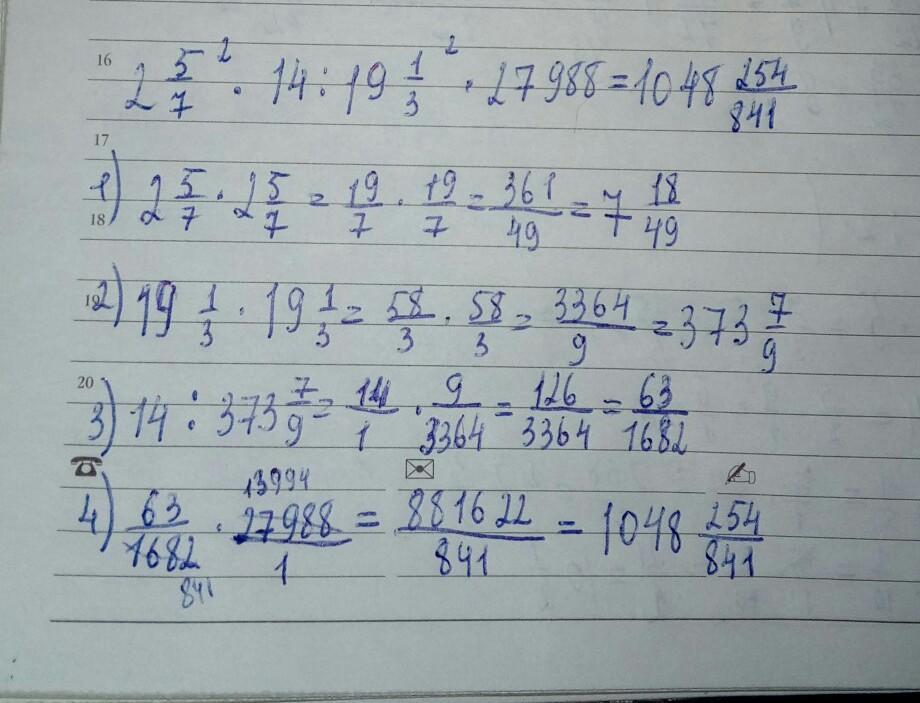 16 2 5/7 ² · 14 : 19 1/3 ² · 27988 = 1048 254/841
17
1) 2 5/7 · 2 5/7 = 19/7 · 19/7 = 361/49 = 7 18/49
18
19 2) 19 1/3 · 19 1/3 = 58/3 · 58/3 = 3364/9 = 373 7/9
20
3) 14 : 373 7/9 = 14/1 · 9/3364 = 126/3364 = 63/1682
13994
4) 63/1682 · 27988/1 = 881622/841 = 1048 254/841
841